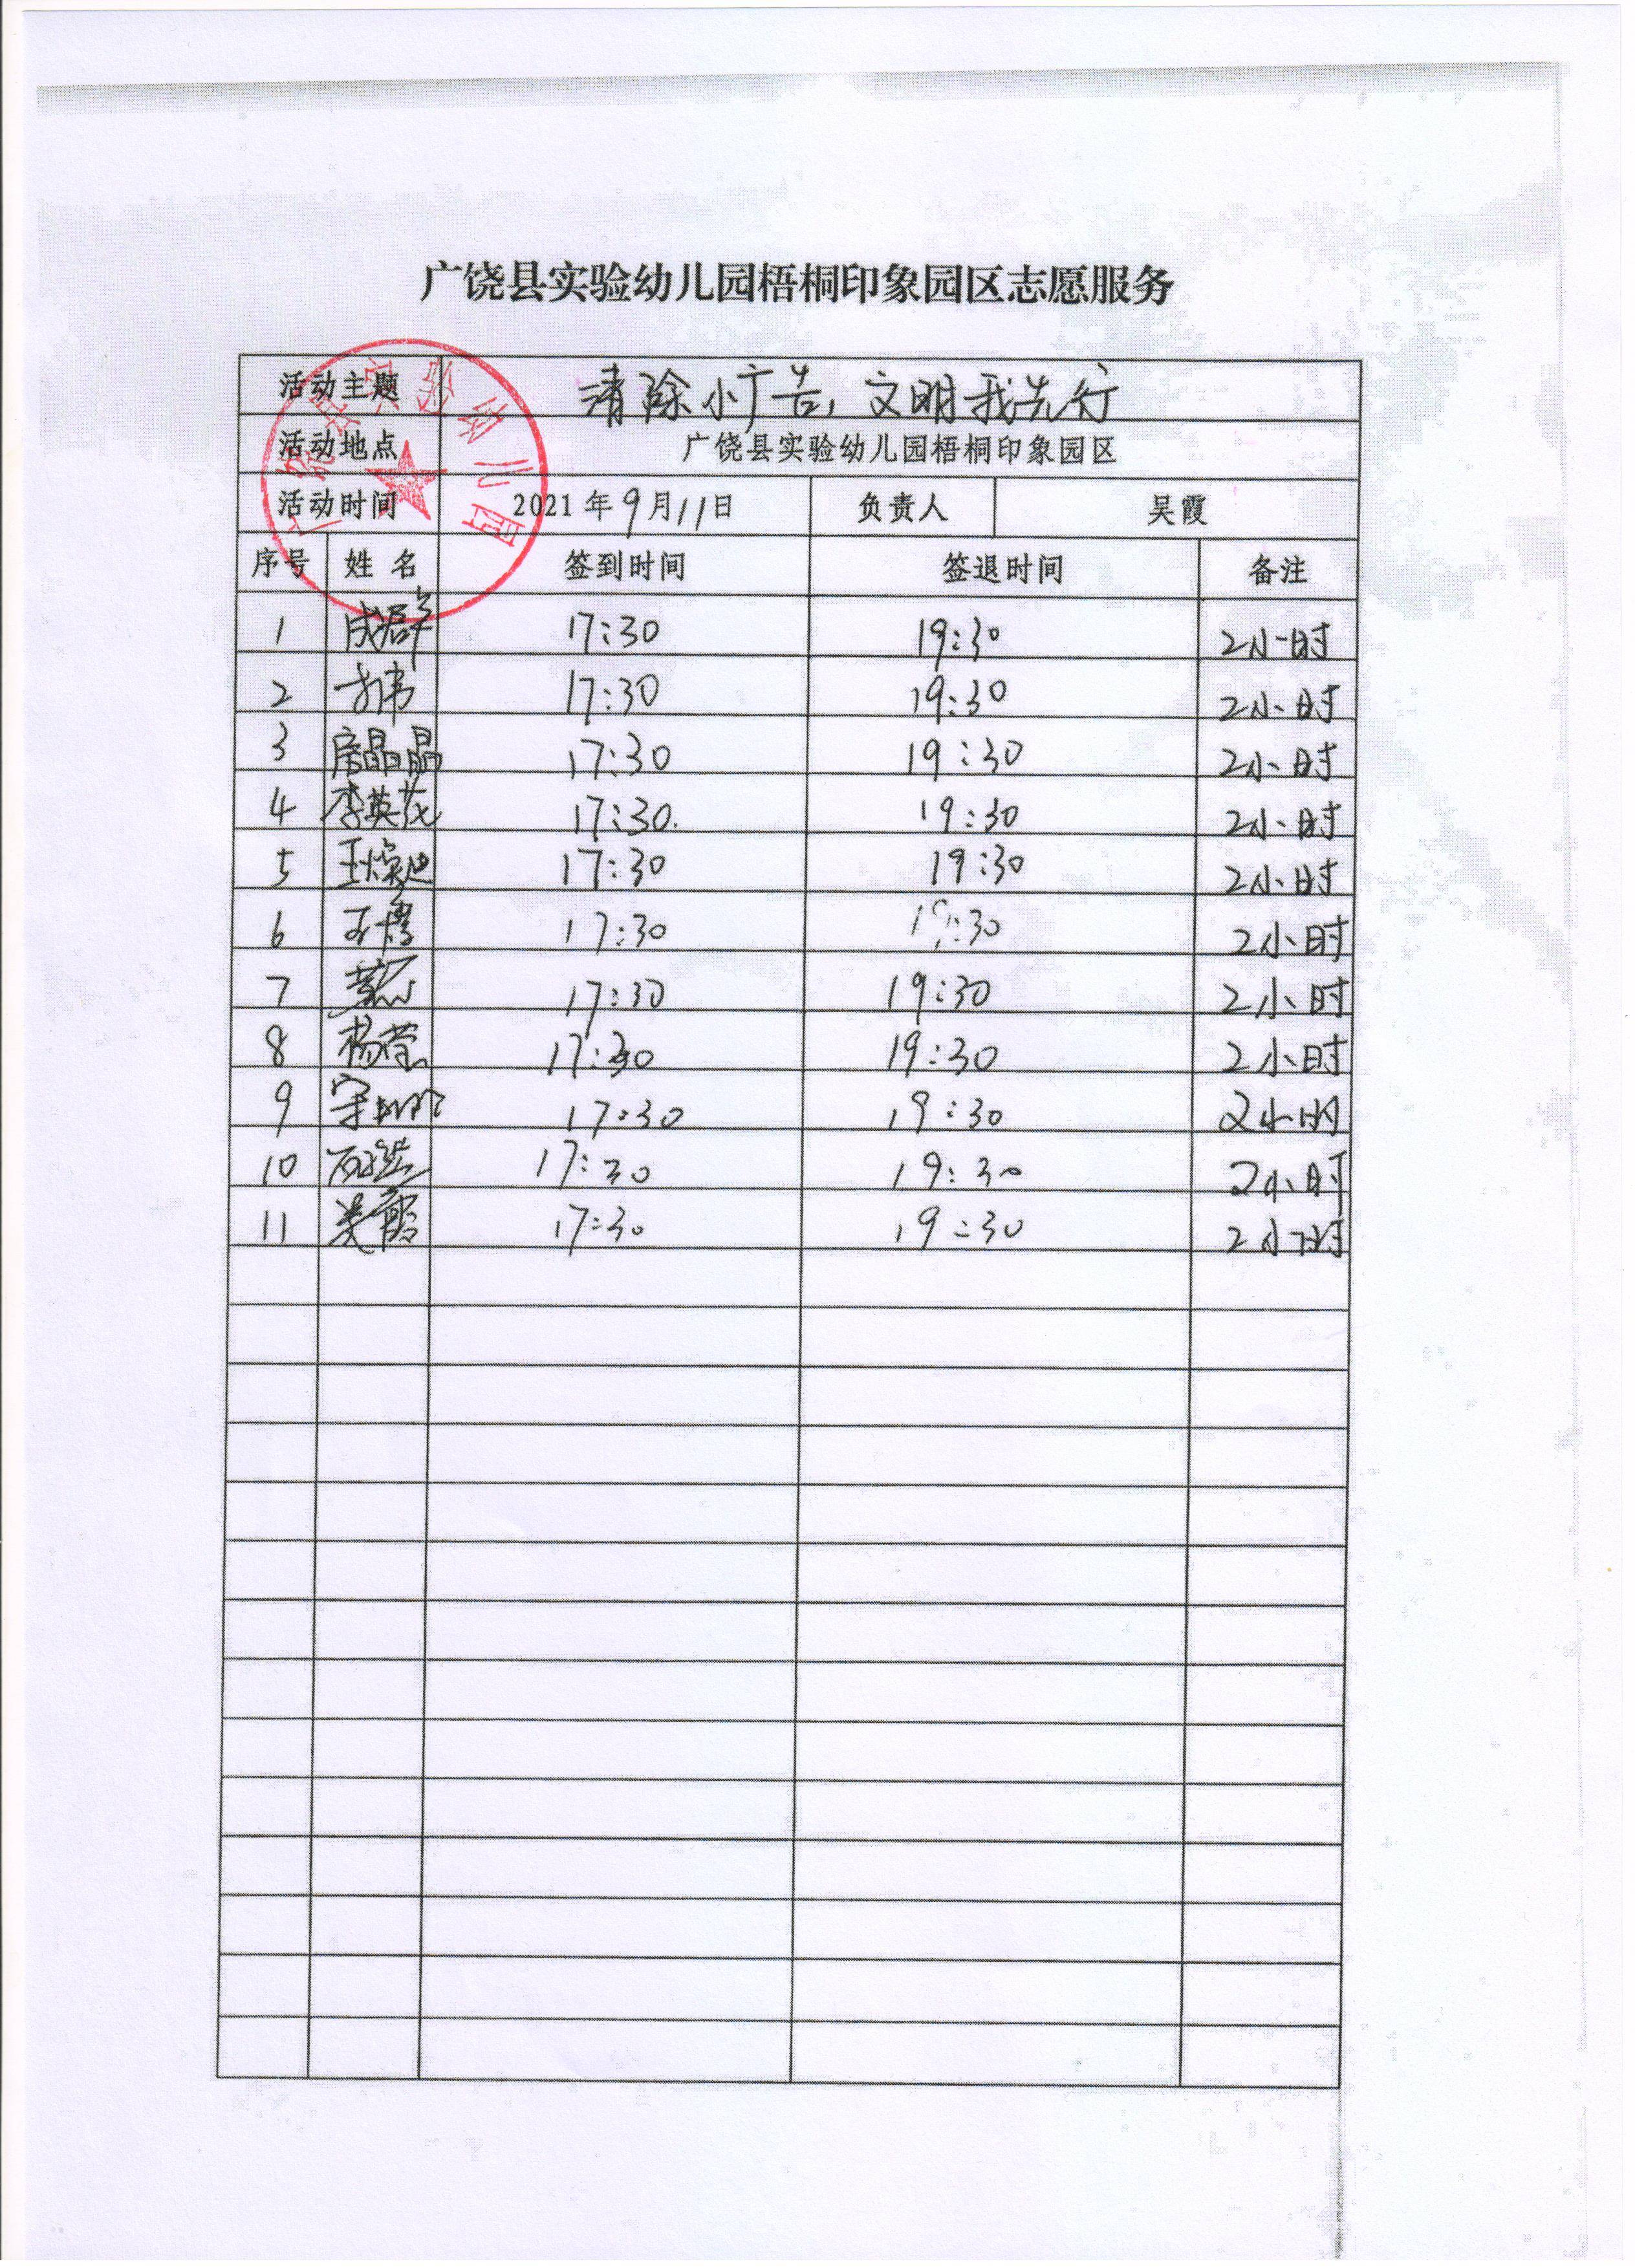 广饶县实验幼儿园梧桐印象园区志愿服务
活动主题 清除小广告，文明我先行
活动地点 广饶县实验幼儿园梧桐印象园区
活动时间 2021年9月11日 负责人 吴霞
序号 姓名 签到时间 签退时间 备注
1 成群 17:30 19:30 2小时
2 17:30 19:30 2小时
3 房晶晶 17:30 19:30 2小时
4 李英花 17:30. 19:30 2小时
5 17:30 19:30 2小时
6 17:30 19:30 2小时
7 17:30 19:30 2小时
8 杨莹 17:30 19:30 2小时
9 17:30 19:30 2小时
10 17:30 19:30 2小时
11 吴霞 17:30 19:30 2小时
广饶县实验幼儿园